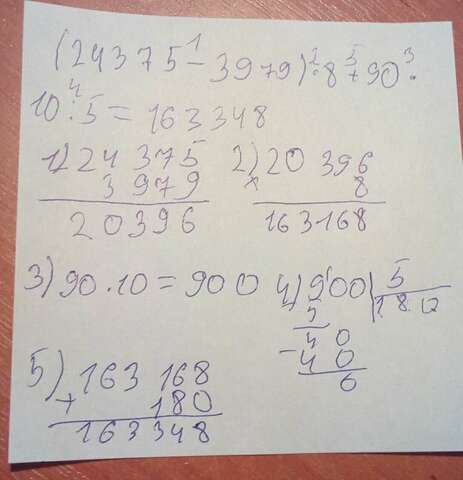 (24375-3979)·8+90·
1 2 5 3
4
10:5=163348
1) 24 375 2) 20 396
- 3 979 × 8
20396 163168
3) 90·10=900 4) 900 5
5 180
40
- 40
0
5) 163 168
+ 180
163348